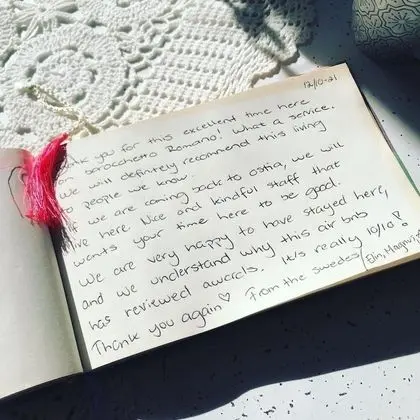 12/10-21
ank you for this excellent time here
on barocchetto Romano! What a service.
We will definitely recommend this living
to people we know.
If we are coming back to ostia, we will
live here. Nice and kindful staff that
wants your time here to be good.
We are very happy to have stayed here,
and we understand why this air bnb
has reviewed awards. It's really 10/10!
Thank you again♡ From the swedes / Elin, Magnus